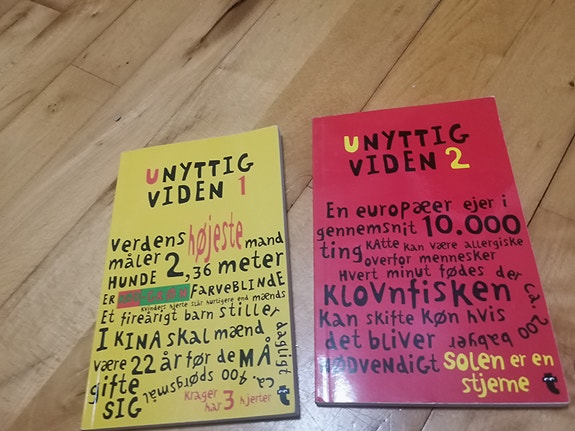 UNYTTIG
VIDEN 1
Verdens højeste mand
måler 2,36 meter
HUNDE
ER RØD-GRØN FARVEBLINDE
Kvinders hjerte slår hurtigere end mænds
Et fireårigt barn stiller
ca. 400 spørgsmål dagligt
I KINA skal mænd
være 22 år før de MÅ
gifte
SIG
Krager
har 3 hjerter
UNYTTIG
VIDEN 2
En europæer ejer i
gennemsnit 10.000
ting
KAtte kan være allergiske
overfor mennesker
Hvert minut fødes der
ca. 200 babyer
Klovnfisken
kan skifte køn hvis
det bliver
nødvendigt
SOLEN er en
stjerne